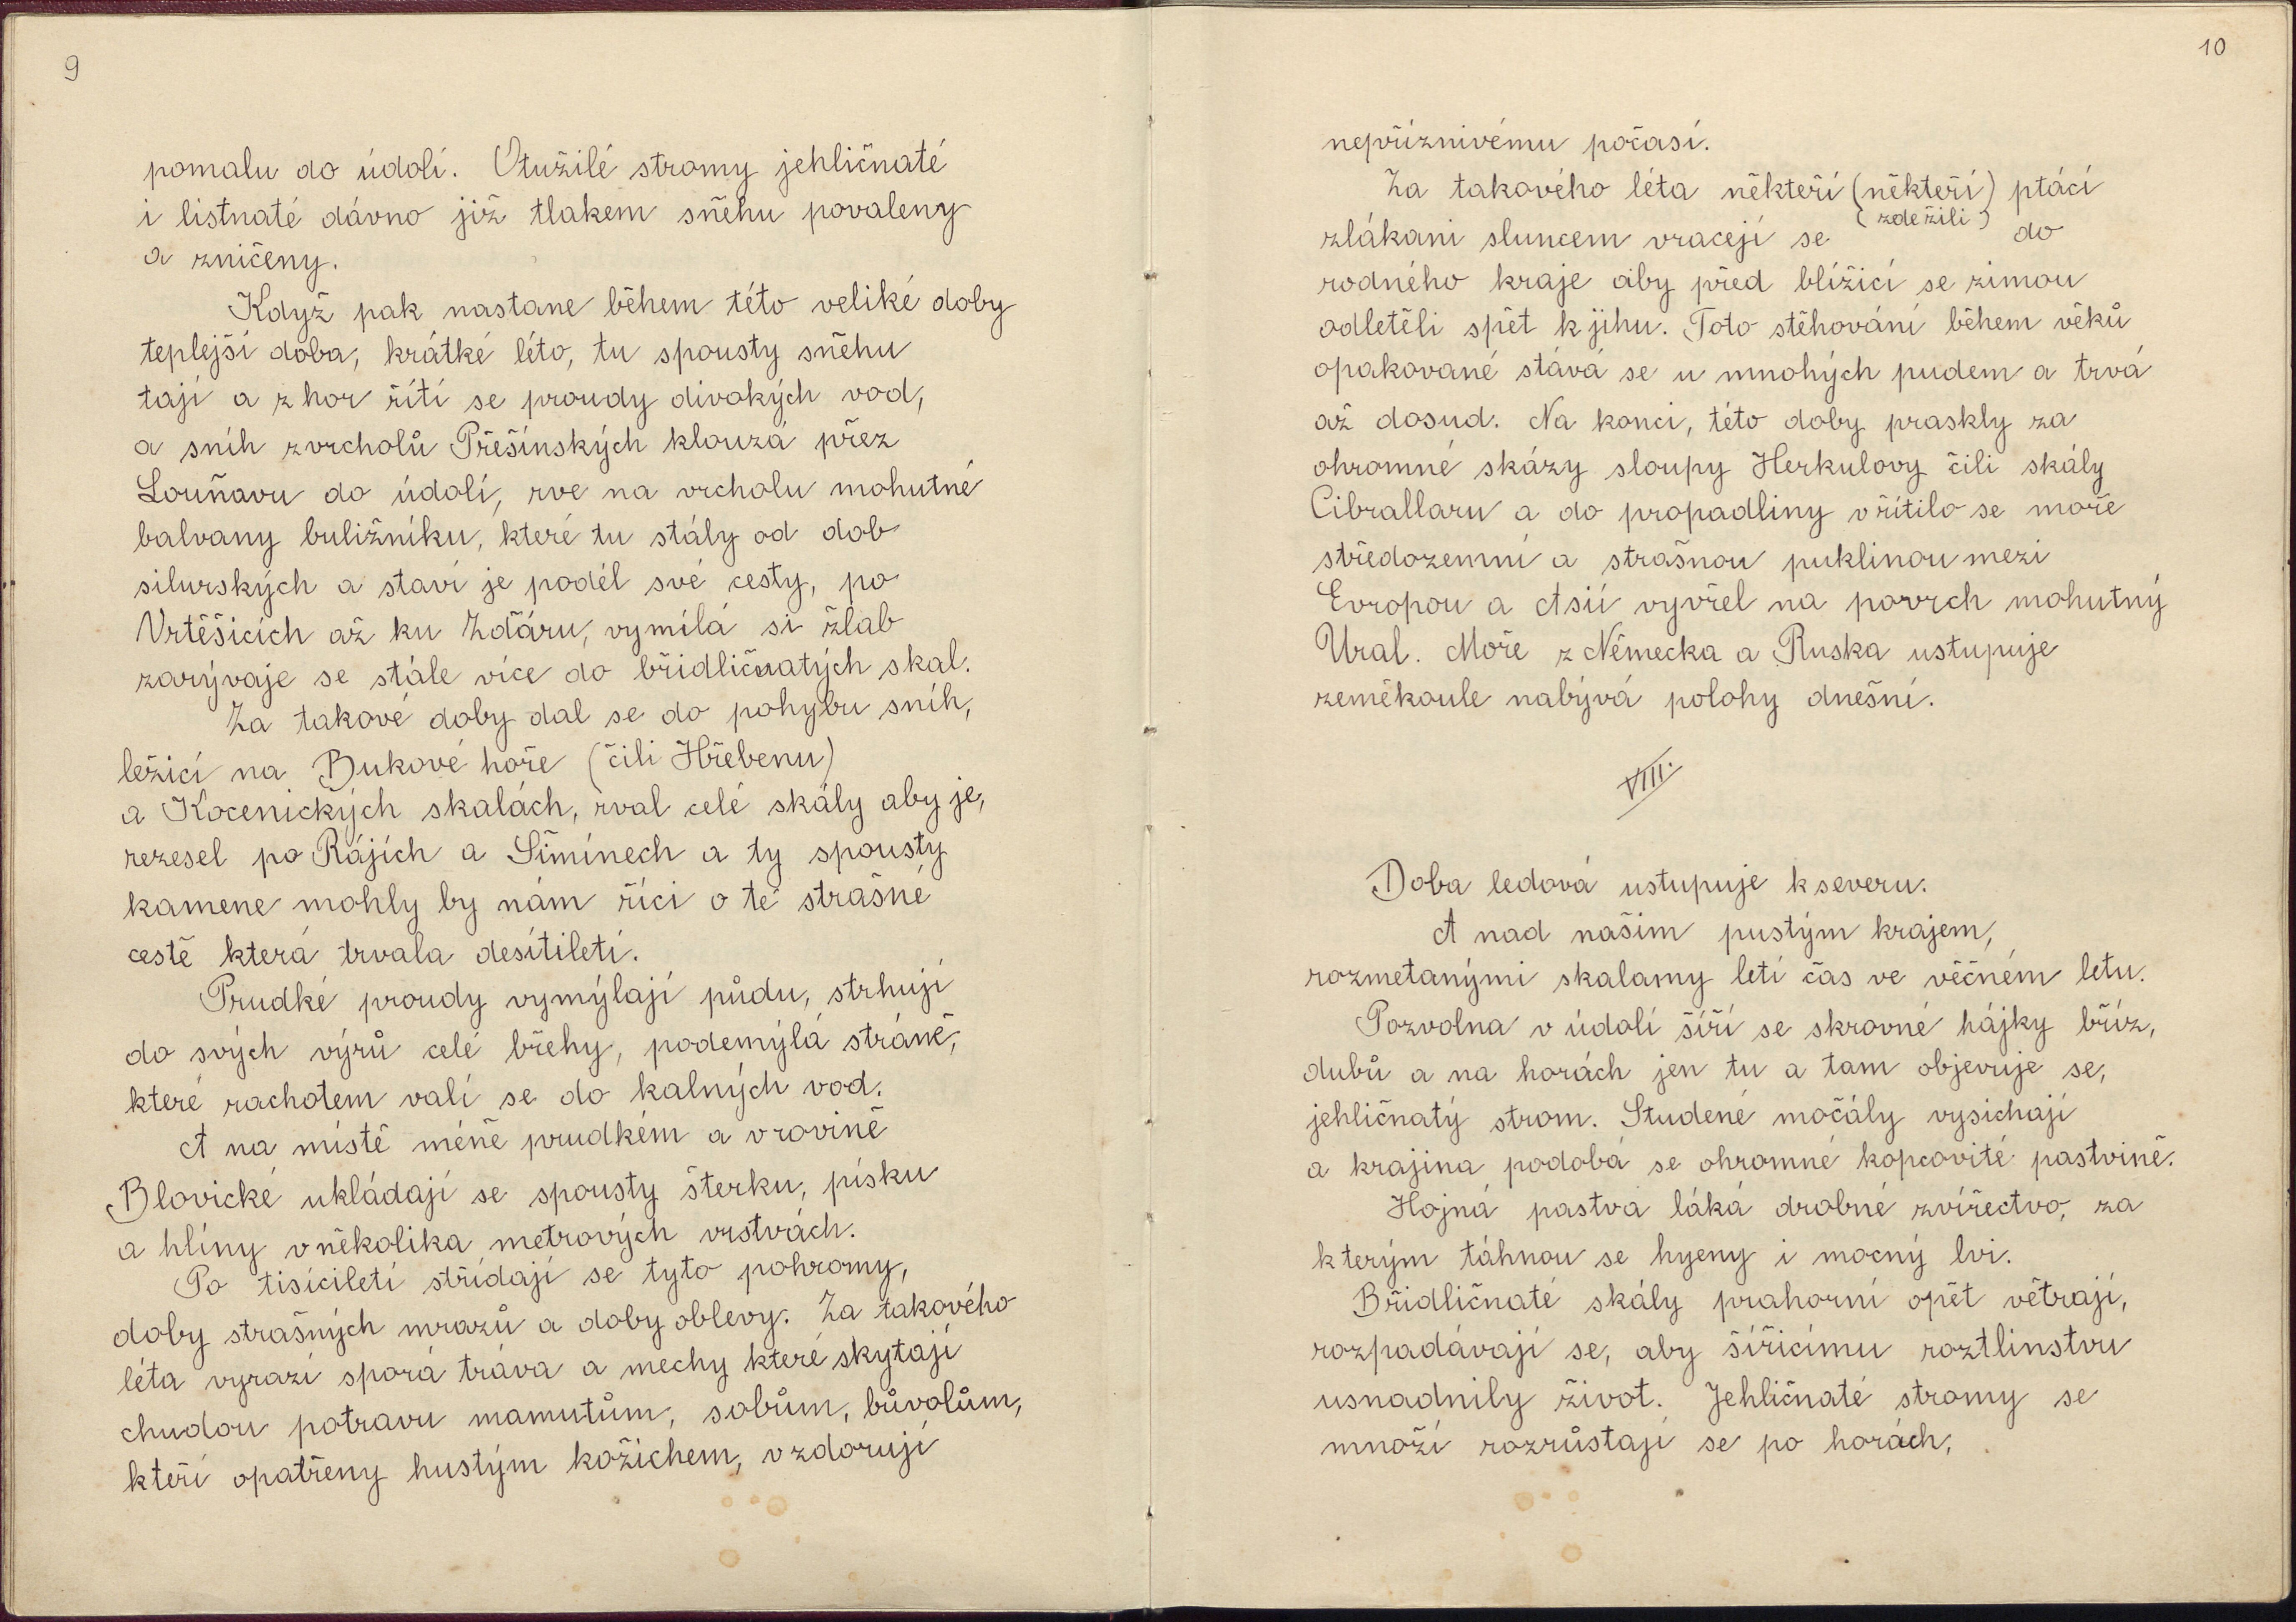 9
pomalu do údolí. Otužilé stromy jehličnaté
i listnaté dávno již tlakem sněhu povaleny
a zničeny.
Když pak nastane během této veliké doby
teplejší doba, krátké léto, tu spousty sněhu
tají a z hor řítí se proudy divokých vod,
a sníh z vrcholů Přešínských klouzá přez
Louňavu do údolí, rve na vrcholu mohutné
balvany buližníku, které tu stály od dob
silurských a staví je podél své cesty, po
Vrtěšicích až ku Žďáru, vymílá si žlab
zarývaje se stále více do břidličnatých skal.
Za takové doby dal se do pohybu sníh,
ležící na Bukové hoře (čili Hřebenu)
a Kocenických skalách, rval celé skály aby je,
rezesel po Rájích a Simínech a ty spousty
kamene mohly by nám říci o té strašné
cestě která trvala desítiletí.
Prudké proudy vymýlají půdu, strhují
do svých výrů celé břehy, podemýlá stráně,
které rachotem valí se do kalných vod.
A na místě méně prudkém a v rovině
Blovické ukládají se spousty šterku, písku
a hlíny v několika metrových vrstvách.
Po tisíciletí střídají se tyto pohromy,
doby strašných mrazů a doby oblevy. Za takového
léta vyrazí sporá tráva a mechy které skytají
chudou potravu mamutům, sobům, bůvolům,
kteří opatřeny hustým kožichem, vzdorují
10
nepříznivému počasí.
Za takového léta někteří (někteří) ptáci
(zdežili)
zlákani sluncem vracejí se do
rodného kraje aby před blížící se zimou
odletěli spět k jihu. Toto stěhování během věků
opakované stává se u mnohých pudem a trvá
až dosud. Na konci, této doby praskly za
ohromné skázy sloupy Herkulovy čili skály
Cibrallaru a do propadliny vřítilo se moře
středozemní a strašnou puklinou mezi
Evropou a Asií vyvřel na povrch mohutný
Ural. Moře z Německa a Ruska ustupuje
zeměkoule nabývá polohy dnešní.
VIII.
Doba ledová ustupuje k severu.
A nad našim pustým krajem,
rozmetanými skalamy letí čas ve věčném letu.
Pozvolna v údolí šíří se skrovné hájky bříz,
dubů a na horách jen tu a tam objevuje se,
jehličnatý strom. Studené močály vysichají
a krajina podobá se ohromné kopcovité pastvině.
Hojná pastva láká drobné zvířectvo, za
kterým táhnou se hyeny i mocný lvi.
Břidličnaté skály prahorní opět větrají,
rozpadávají se, aby šířícímu roztlinstvu
usnadnily život. Jehličnaté stromy se
množí rozrůstají se po horách,